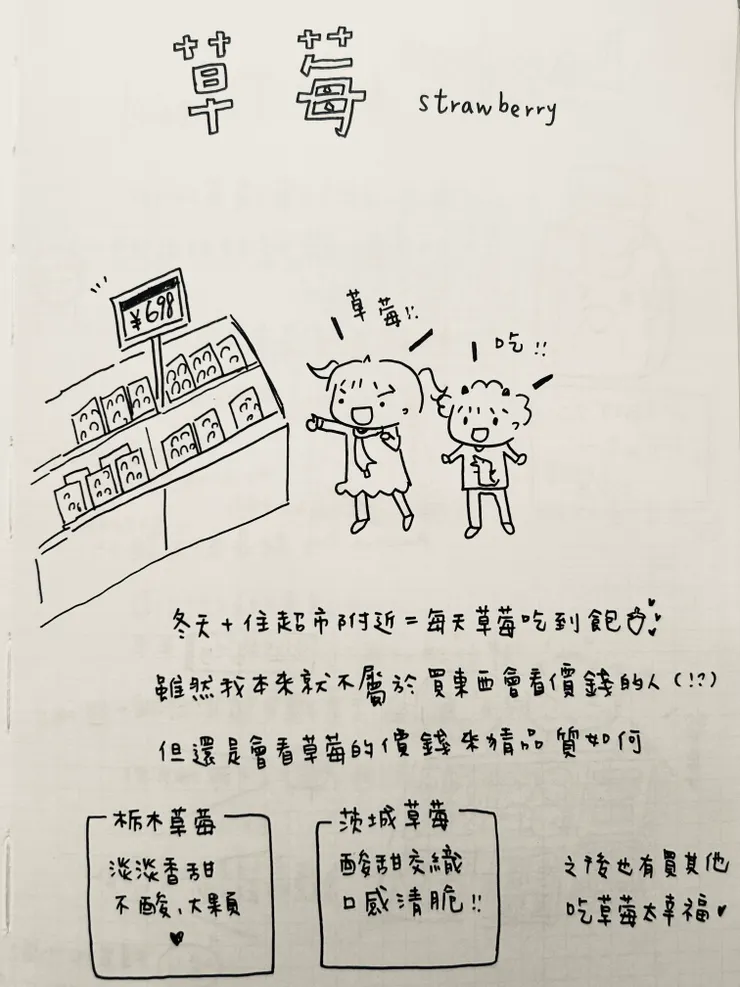 草莓 strawberry
¥698
草莓!!
吃!!
冬天+住超市附近=每天草莓吃到飽
雖然我本來就不屬於買東西會看價錢的人(!?)
但還是會看草莓的價錢來猜品質如何
栃木草莓
淡淡香甜
不酸、大顆
茨城草莓
酸甜交織
口感清脆!!
之後也有買其他
吃草莓太幸福